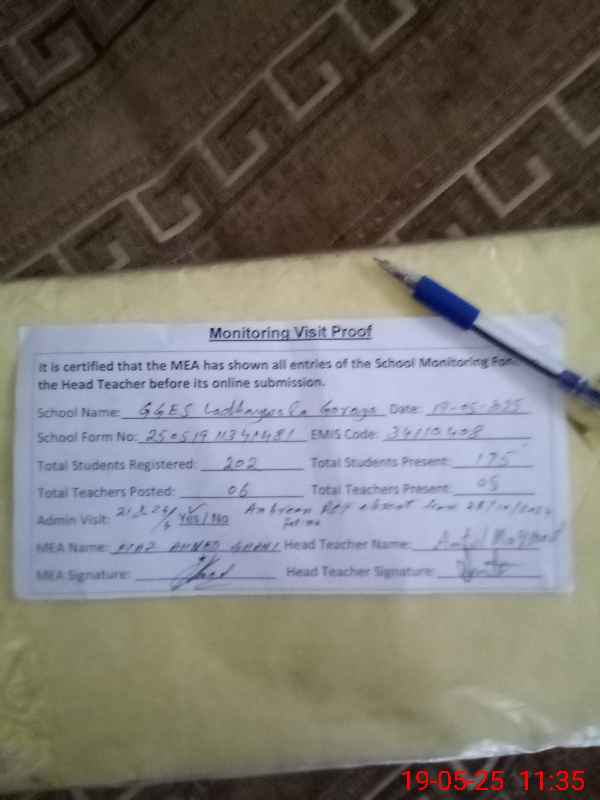 Monitoring Visit Proof
It is certified that the MEA has shown all entries of the School Monitoring For
the Head Teacher before its online submission.
School Name: GGES Goraya Date: 19-05-2025
School Form No: EMIS Code: 34110408
Total Students Registered: 202 Total Students Present: 175
Total Teachers Posted: 06 Total Teachers Present: 05
Admin Visit: Yes / No Ambreen absent from 28/10/2024
Fatima
MEA Name: AHMED Head Teacher Name:
MEA Signature: Head Teacher Signature:
19-05-25 11:35